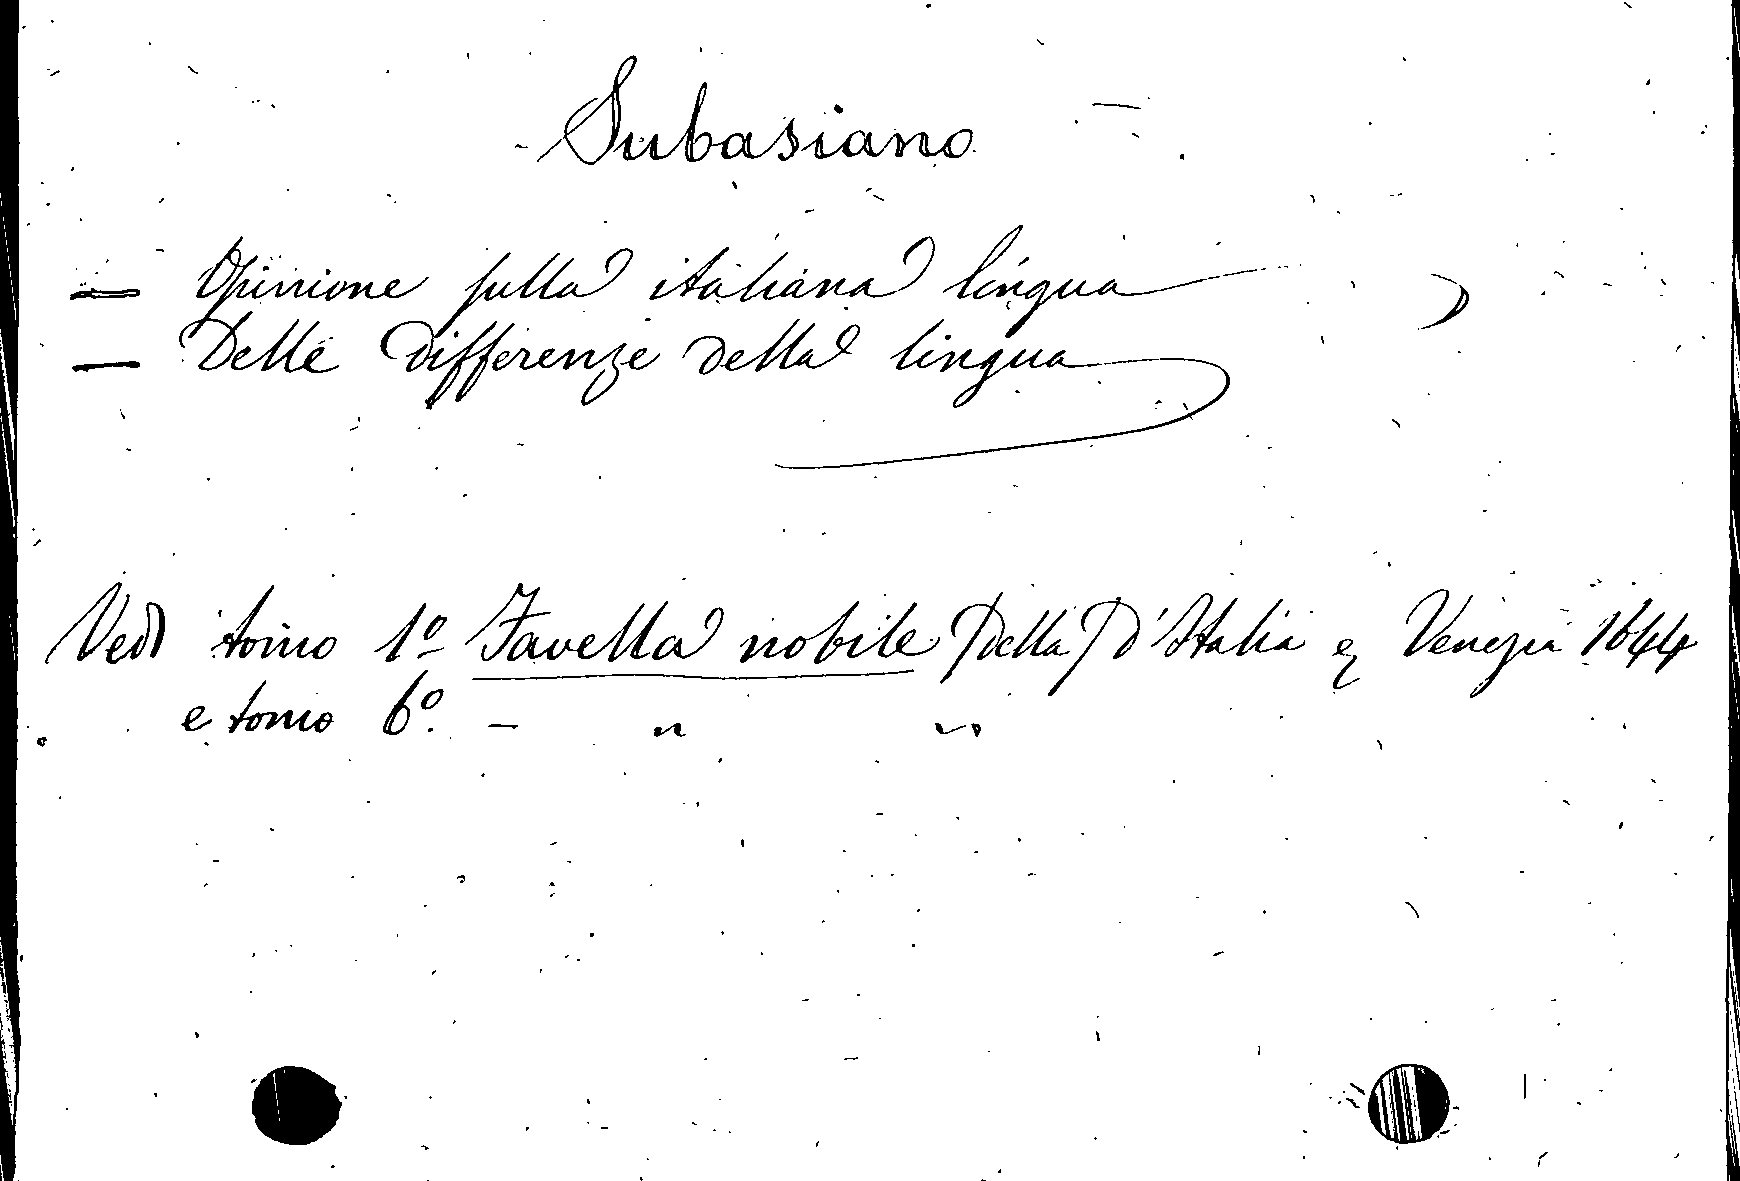 Subasiano
— Opinione sulla italiana lingua
— Delle differenze della lingua
Vedi tomo 1º Favella nobile (della) d'Italia ez Venezia 1644
e tomo 6º. - " "